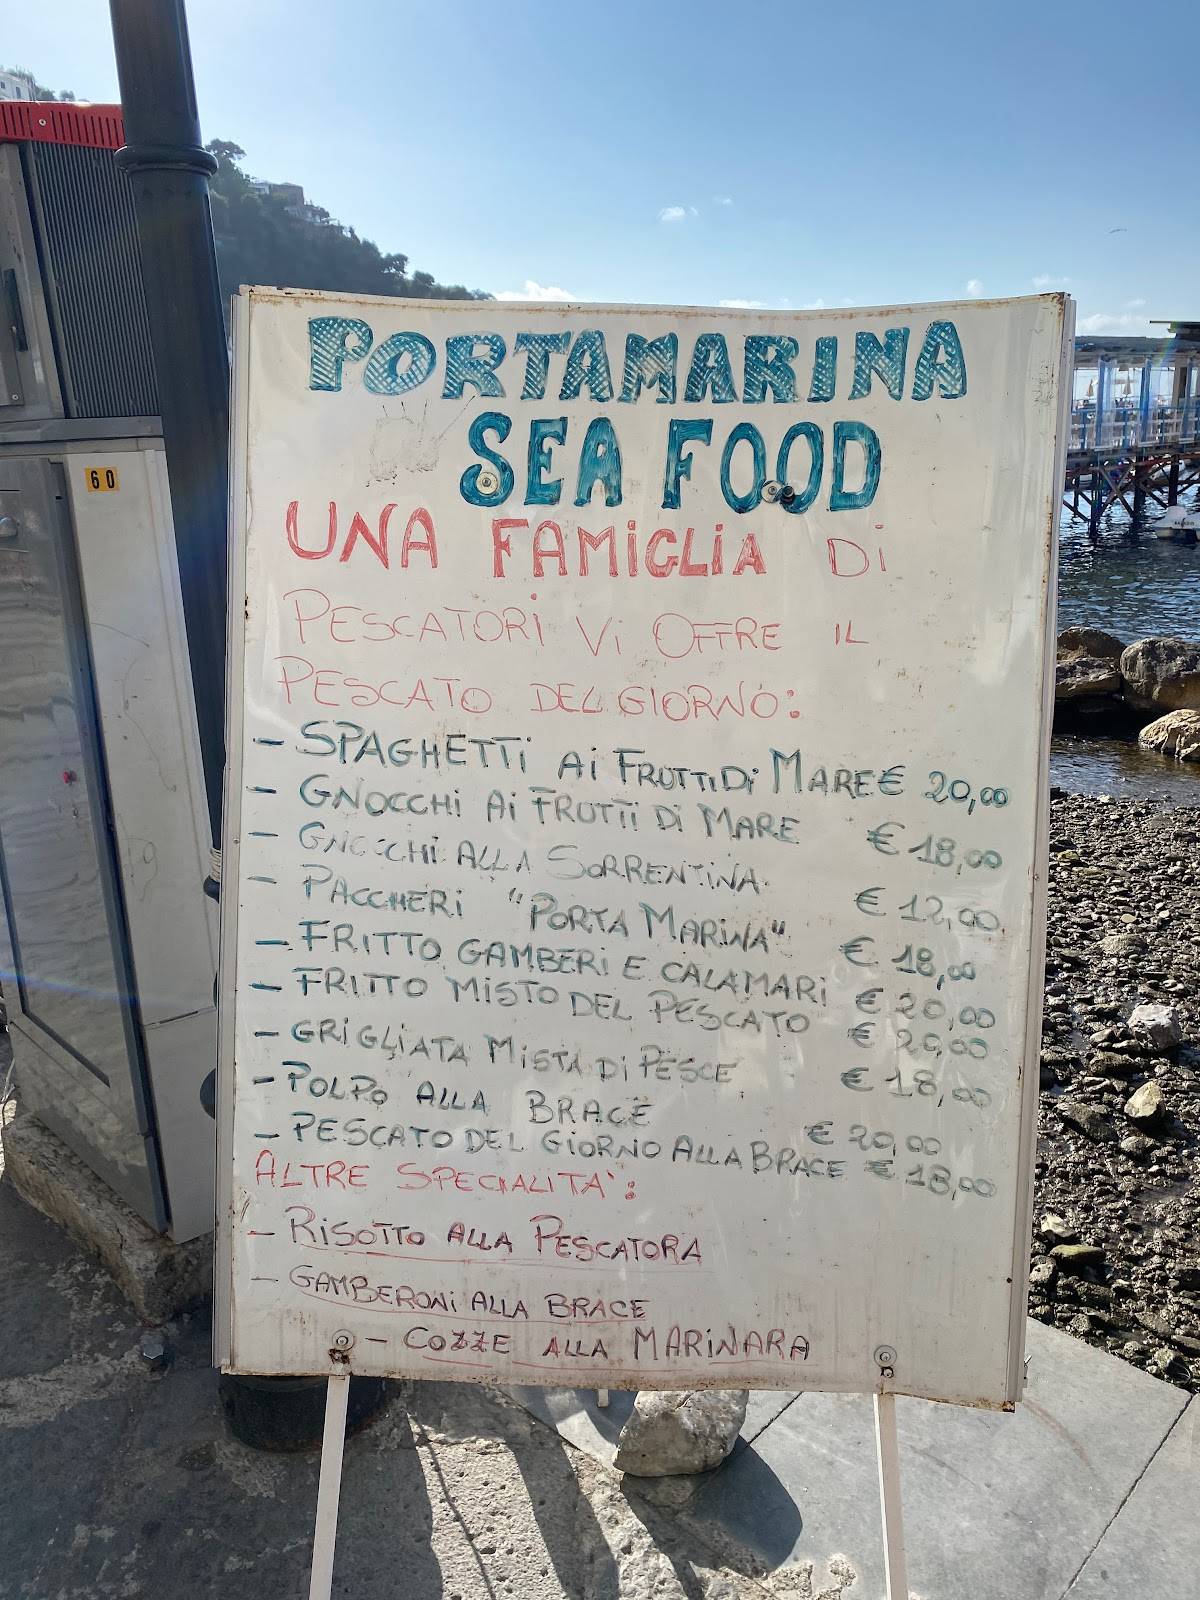 60
PORTAMARINA
SEA FOOD
UNA FAMIGLIA Di
PESCATORi Vi OFFRE iL
PESCATO DEL GIORNO:
- SPAGHETTi Ai FRUTTi Di MARE € 20,00
- GNOCCHi Ai FRUTTi Di MARE € 18,00
- GNOCCHi ALLA SORRENTiNA € 12,00
- PACCHERi "PORTA MARiNA" € 18,00
- FRITTO GAMBERi E CALAMARi € 20,00
- FRITTO MiSTO DEL PESCATO € 20,00
- GRiGLiATA MiSTA Di PESCE € 18,00
- POLPO ALLA BRACE € 20,00
- PESCATO DEL GiORNO ALLA BRACE € 18,00
ALTRE SPECiALiTA':
- RiSOTTO ALLA PESCATORA
- GAMBERONi ALLA BRACE
- COZZE ALLA MARiNARA